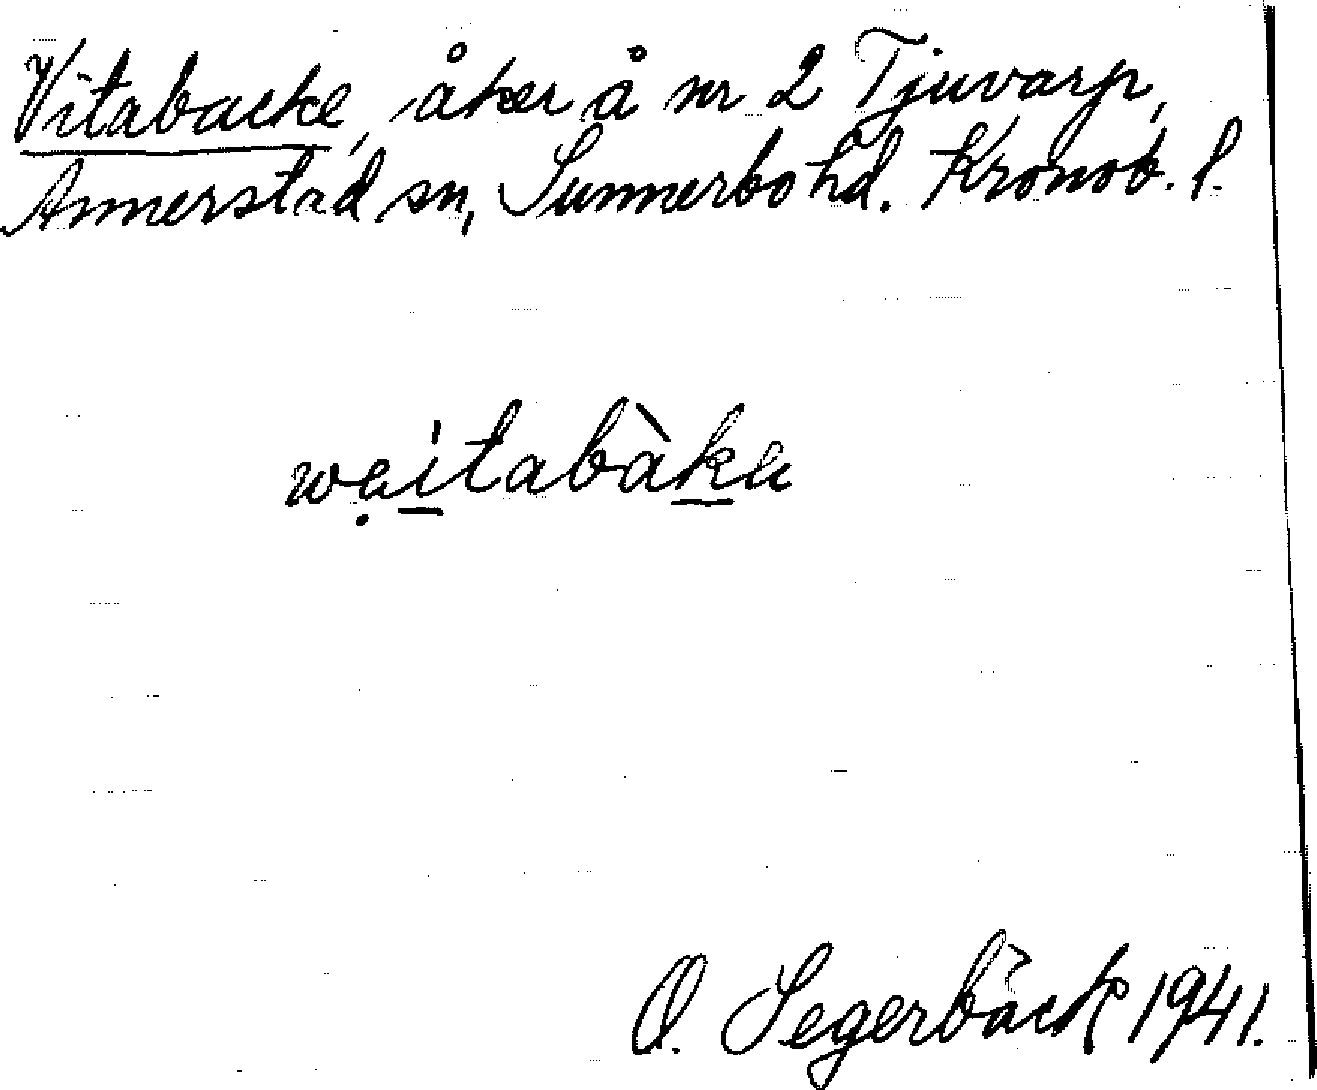 Vitabacke, åker å nr 2 Tjuvarp,
Annerstad sn, Sunnerbo hd. Kronob. l.
wại̲tabàk̲a
O. Segerbäck 1941.